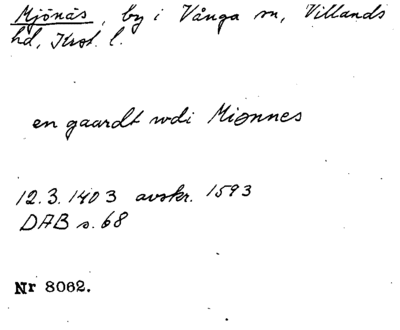 Mjönäs, by i Vånga sn, Villands
hd, Krist. l.
en gaardt wdi Miønnes
12.3.1403 avskr. 1593
DAB s. 68
Nr 8062.